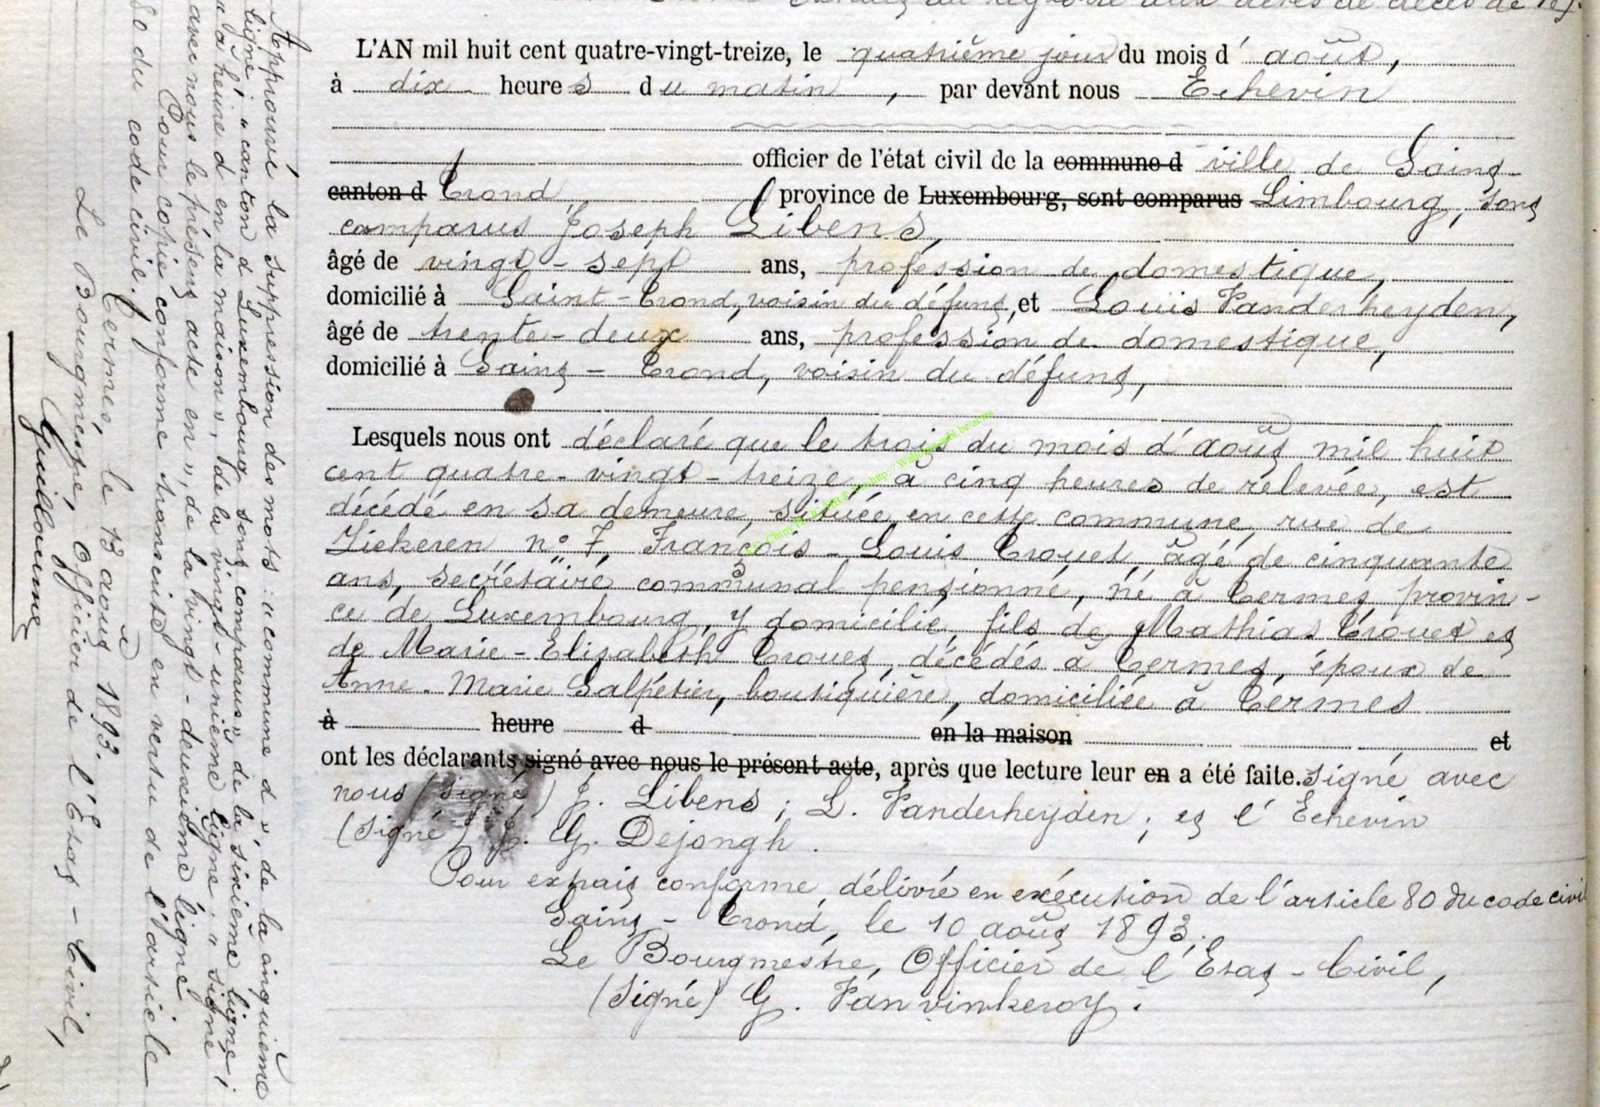 registre aux actes de décès de 189
L'AN mil huit cent quatre-vingt-treize, le quatrième jour du mois d'août,
à dix heures du matin, par devant nous Echevin
officier de l'état civil de la commune d ville de Saint-
canton d Trond, province de Luxembourg, sont comparus Limbourg, sont
comparus Joseph Libens,
âgé de vingt-sept ans, profession de domestique,
domicilié à Saint-Trond, voisin du défunt, et Louis Vanderheyden,
âgé de trente-deux ans, profession de domestique,
domicilié à Saint-Trond, voisin du défunt,
Lesquels nous ont déclaré que le trois du mois d'août mil huit
cent quatre-vingt-treize, à cinq heures de relevée, est
décédé en sa demeure, située en cette commune, rue de
Liekeren n° 7, François-Louis Trouet, âgé de cinquante
ans, secrétaire communal pensionné, né à Termes, provin-
ce de Luxembourg, y domicilié, fils de Mathias Trouet et
de Marie-Elisabeth Trouet, décédés à Termes, époux de
Anne-Marie Salpétier, boutiquière, domiciliée à Termes
à heure d en la maison et
ont les déclarants signé avec nous le présent acte, après que lecture leur en a été faite. signé avec
nous (signé) J. Libens; L. Vanderheyden; et l'Echevin
(signé) J. G. Dejongh.
Pour extrait conforme, délivré en exécution de l'article 80 du code civil
Saint-Trond, le 10 août 1893.
Le Bourgmestre, Officier de l'Etat-Civil,
(signé) G. Vanvinkeroy.
Approuvé la suppression des mots: "commune d", de la cinquième
ligne; "canton d Luxembourg sont comparus", de la sixième ligne;
"à la heure d en la maison", de la vingt-unième ligne; "signé
avec nous le présent acte en", de la vingt-deuxième ligne
Pour copie conforme transcrite en vertu de l'article
80 du code civil.
Termes, le 13 août 1893.
Le Bourgmestre, Officier de l'Etat-Civil,
Guillaume